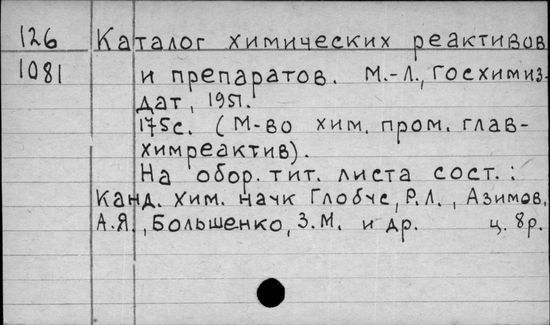 126 Каталог химических реактивов
1081 и препаратов. М.-Л., Госхимиз-
дат, 1951.
175с. (М-во хим. пром. Глав-
химреактив).
На обор. тит. листа сост.:
Канд. хим. наук Глобус, Р.Л., Азимов,
А.Я., Большенко, З.М. и др. ц. 8р.